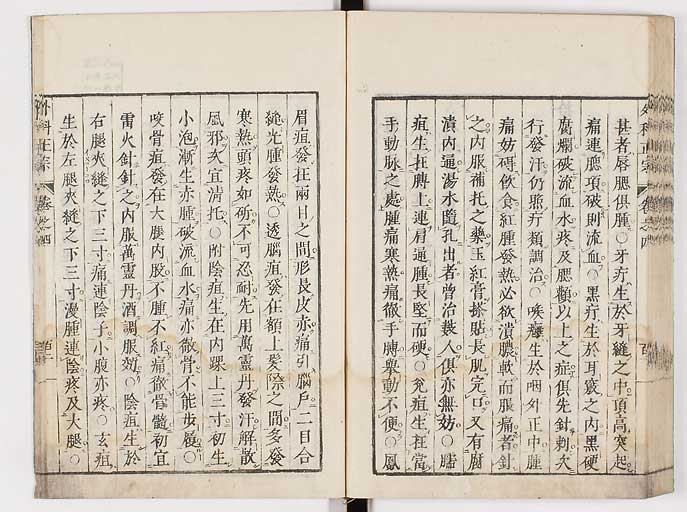 甚者唇腮俱腫○牙疔生於牙縫之中頂高突起
痛連腮項破則流血○黑疔生於耳竅之內黑硬
腐爛破流血水疼及腮顴以上之症俱先針刺次
行發汗仍照疔類調治○喉癰生於咽外正中腫
痛妨碍飲食紅腫發熱必欲潰膿軟而脹痛者針
之內服補托之藥玉紅膏搽貼長肌完口又有腐
潰內通湯水隨孔出者曾治數人俱亦無妨○臑
疽生在膊上連肩漫腫長堅而硬○兖疽生在當
手動脉之處腫痛寒熱痛徹手膊舉動不便○鳳
外科正宗 卷之四 百
眉疽發在兩目之間形長皮赤痛引腦戶二目合
縫光腫發熱○透腦疽發在額上髮際之間多發
寒熱頭疼如斫不可忍耐先用萬靈丹發汗解散
風邪次宜清托○附陰疽生在內踝上三寸初生
小泡漸生赤腫破流血水痛亦徹骨不能步履○
咬骨疽發在大腿內股不腫不紅痛徹骨髓初宜
雷火針針之內服萬靈丹酒調服効○陰疽生於
右腿夾縫之下三寸痛連陰子小腹亦疼○玄疽
生於左腿夾縫之下三寸漫腫連陰疼及大腿○
外科正宗 卷之四